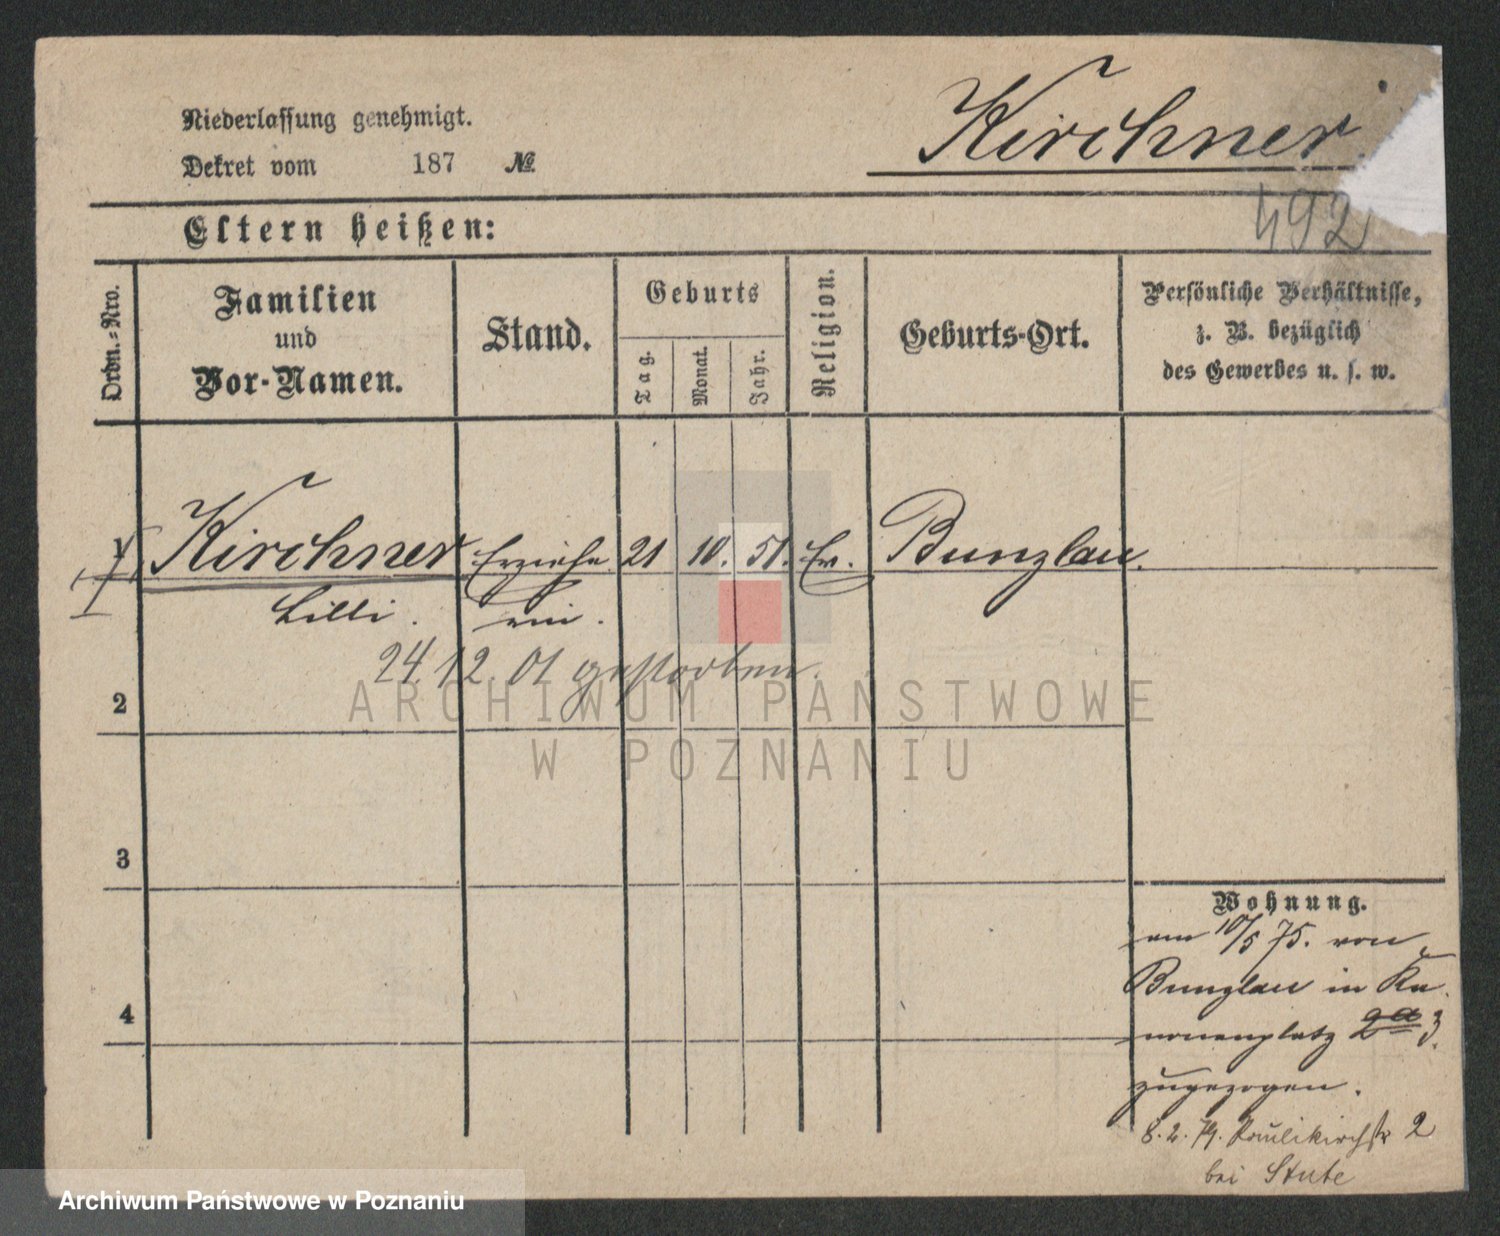 Niederlassung genehmigt.
Dekret vom 187 №
Kirchner
492
Eltern heißen:
Ordn.=Nro.
Familien
und
Vor-Namen.
Stand.
Geburts
Tag.
Monat.
Jahr.
Religion.
Geburts-Ort.
Persönliche Verhältnisse,
z. B. bezüglich
des Gewerbes u. s. w.
1 Kirchner Erziehe 21 10. 51. Ev. Bunzlau.
Lilli. rin.
24.12.01 gestorben.
2
ARCHIWUM PAŃSTWOWE
W POZNANIU
3
4
Wohnung.
am 10/5 75. von
Bunzlau in Ka
nonenplatz 2a 3.
zugezogen.
8.2.79. Paulikirchstr 2
bei Stute
Archiwum Państwowe w Poznaniu